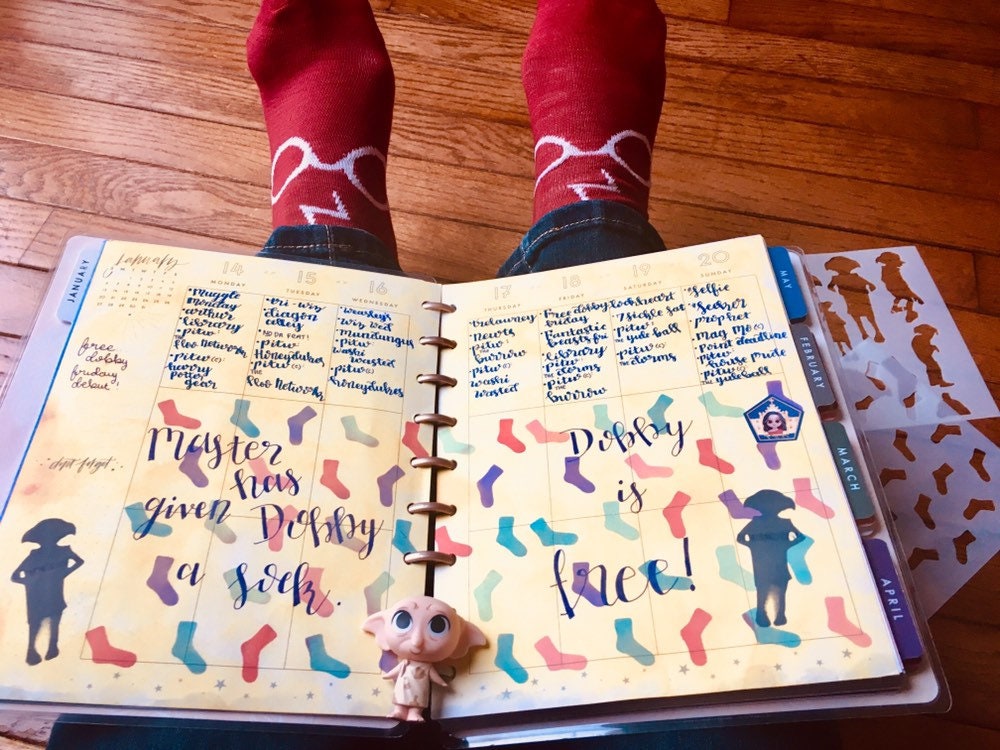 January
14
15
16
17
18
19
20
MONDAY
TUESDAY
WEDNESDAY
THURSDAY
FRIDAY
SATURDAY
SUNDAY
JANUARY
free
dobby
friday
debut
don't forget
• Muggle
monday
• arthur
library
• Pitw
The
Floo Network
• Pitw (C)
• harry
Potter
gear
• Tri-wiz
diagon
alley
• Pitw
Honeydukes
• Pitw (C)
The
Floo Network
• Weasley's
wiz wed
• Mundungus
• Pitw
washi
wasted
• Pitw (C)
honeydukes
• Trelawney
• newts
• Pitw
The
burrow
• Pitw (C)
washi
wasted
• Free dobby
friday
• Fantastic
beasts fri
• library
• Pitw
The dorms
• Pitw (C)
The
burrow
• Lockheart
7 sickle Sat
• Pitw
The yule ball
• Pitw (C)
The dorms
• Selfie
• Seeker
• prophet
• Mag Mo (C)
• Point deadline
• Pitw
house Pride
• Pitw (C)
The yule ball
Master
has
given Dobby
a sock.
Dobby
is
free!
MAY
FEBRUARY
MARCH
APRIL